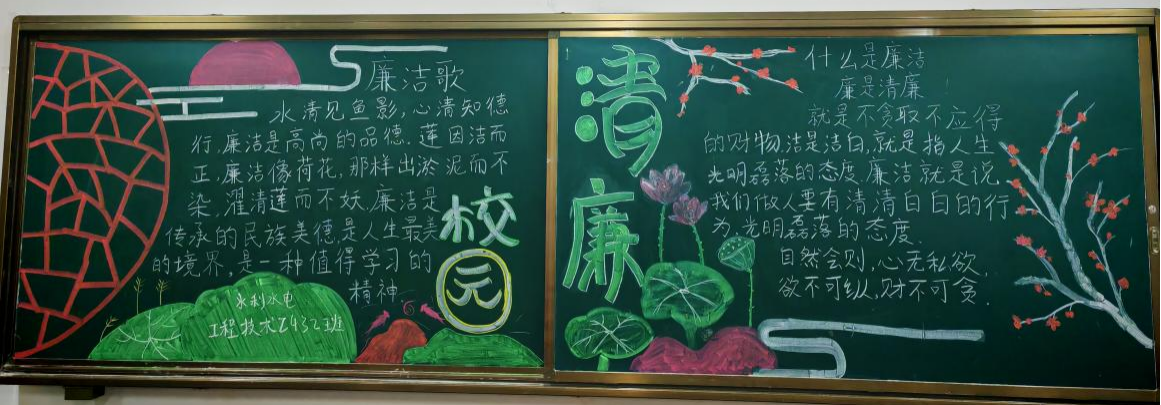 廉洁歌
水清见鱼影,心清知德
行,廉洁是高尚的品德.莲因洁而
正,廉洁像荷花,那样出淤泥而不
染,濯清莲而不妖.廉洁是
传承的民族美德.是人生最美
的境界,是一种值得学习的
精神.
校
园
水利水电
工程技术Z432班
清
廉
什么是廉洁
廉是清廉!
就是不贪取不应得
的财物,洁是洁白,就是指人生
光明磊落的态度,廉洁就是说.
我们做人要有清清白白的行
为.光明磊落的态度.
自然会则,心无私欲.
欲不可纵,财不可贪.